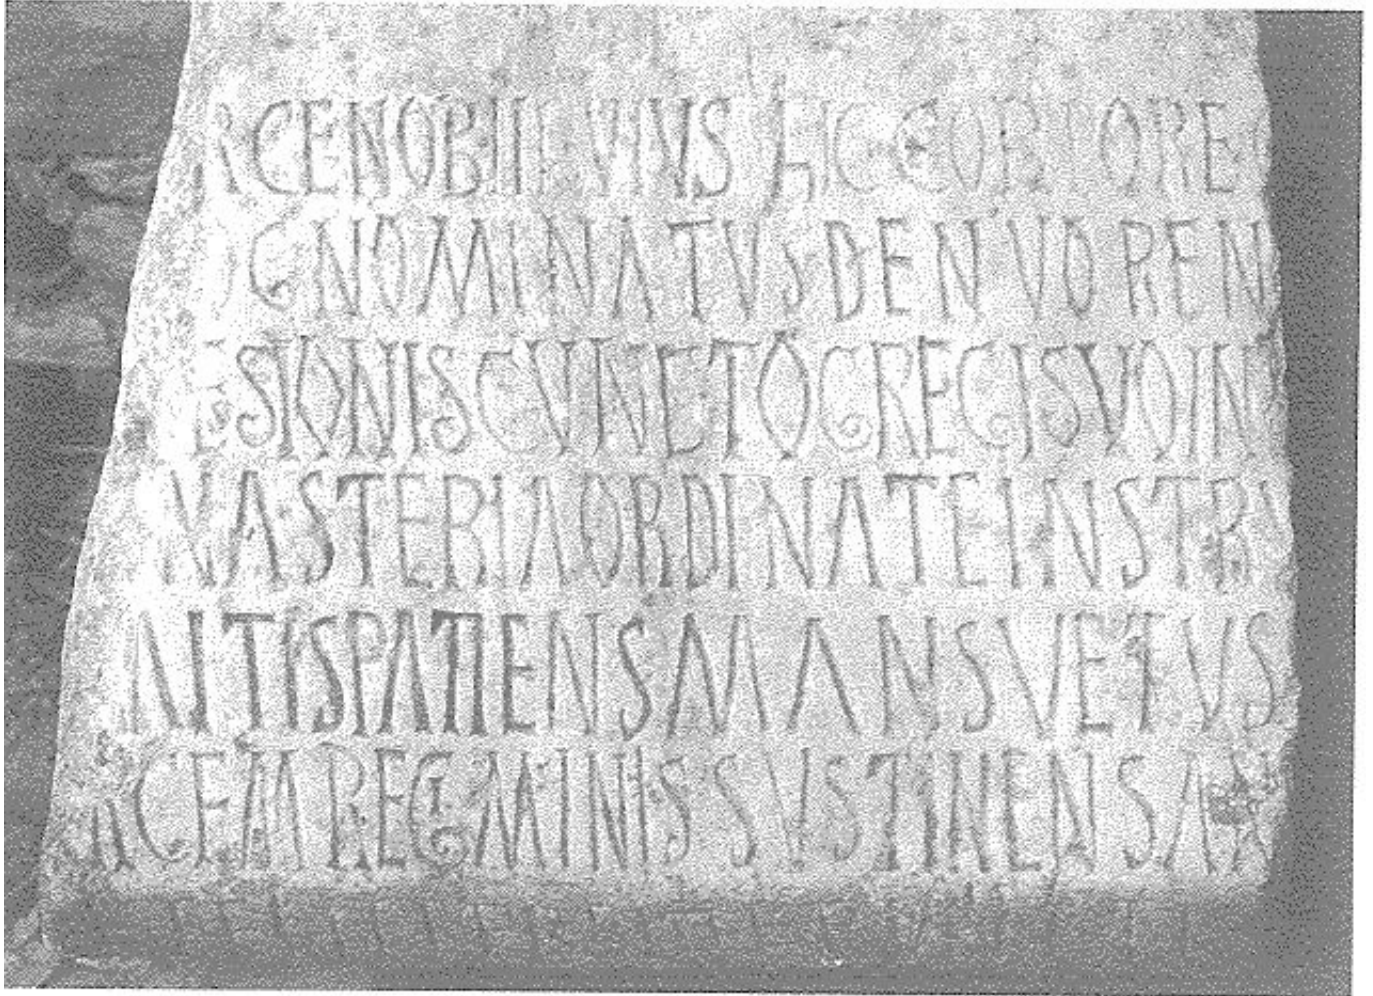 RCENOBII HVIVS HIC COBTORE
OGNOMINATVS DENVO REN
ESIONIS CVNCTO GREGIS VO IN
NASTERIA ORDINATE INSTRV
NITIS PATIENS MANSVETVS
RCEM REGMINIS SVSTINENS